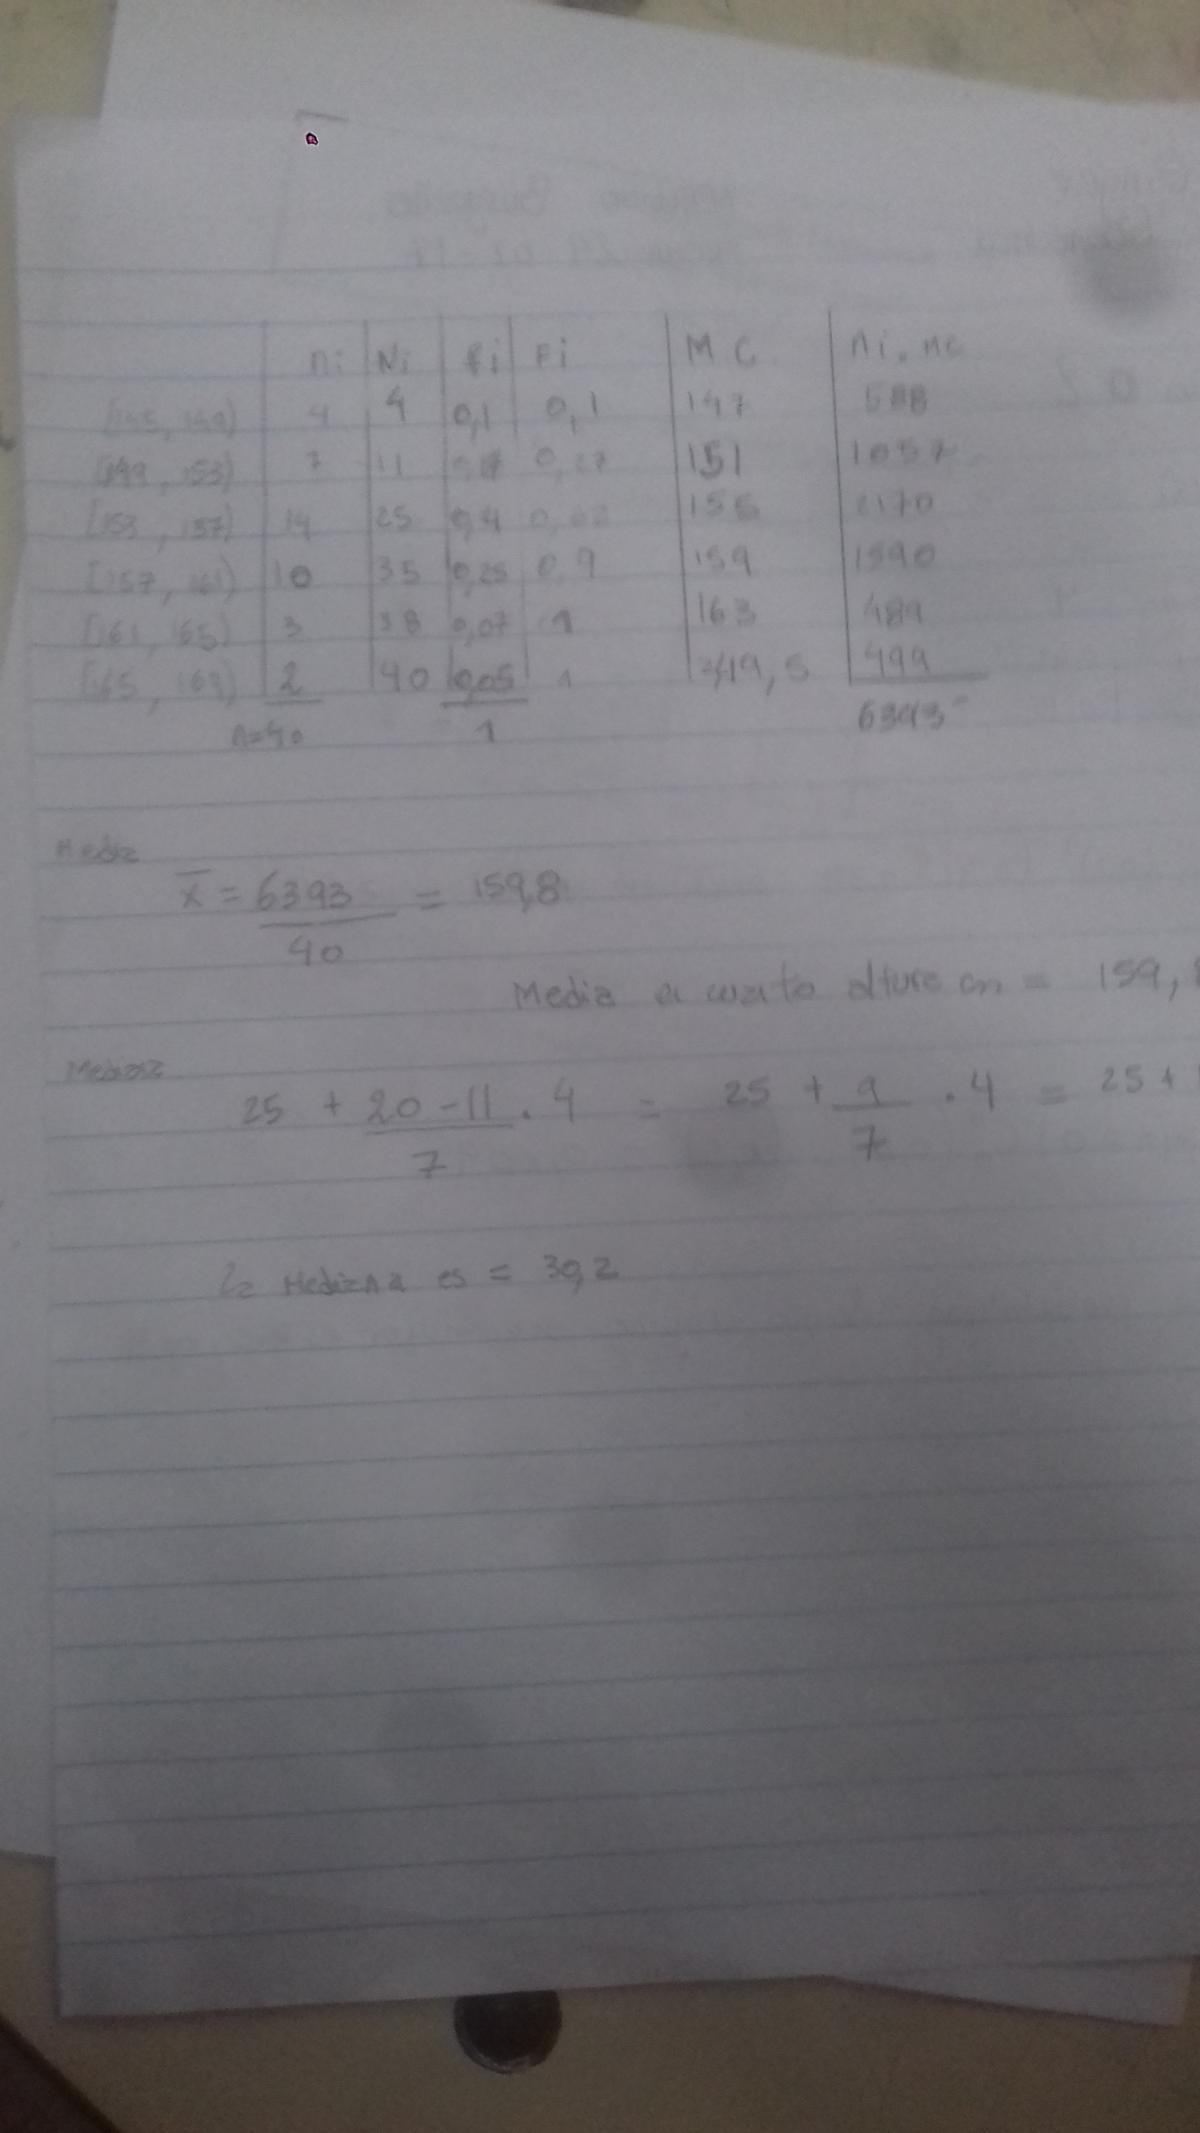 ni Ni fi Fi MC ni.Mc
[145, 149) 4 4 0,1 0,1 147 588
[149, 153) 7 11 0,27 151 1057
[153, 157) 14 25 0,4 0,62 155 2170
[157, 161) 10 35 0,25 0,9 159 1590
[161, 165) 3 38 0,07 1 163 489
[165, 169) 2 40 0,05 1 249,5 499
n=40 1 6393
Media
x̄ = 6393 / 40 = 159,8
Media a cuanto altura cm = 159,8
Mediana
25 + 20 - 11 / 7 . 4 = 25 + 9 / 7 . 4 = 25 +
La Mediana es = 30,2